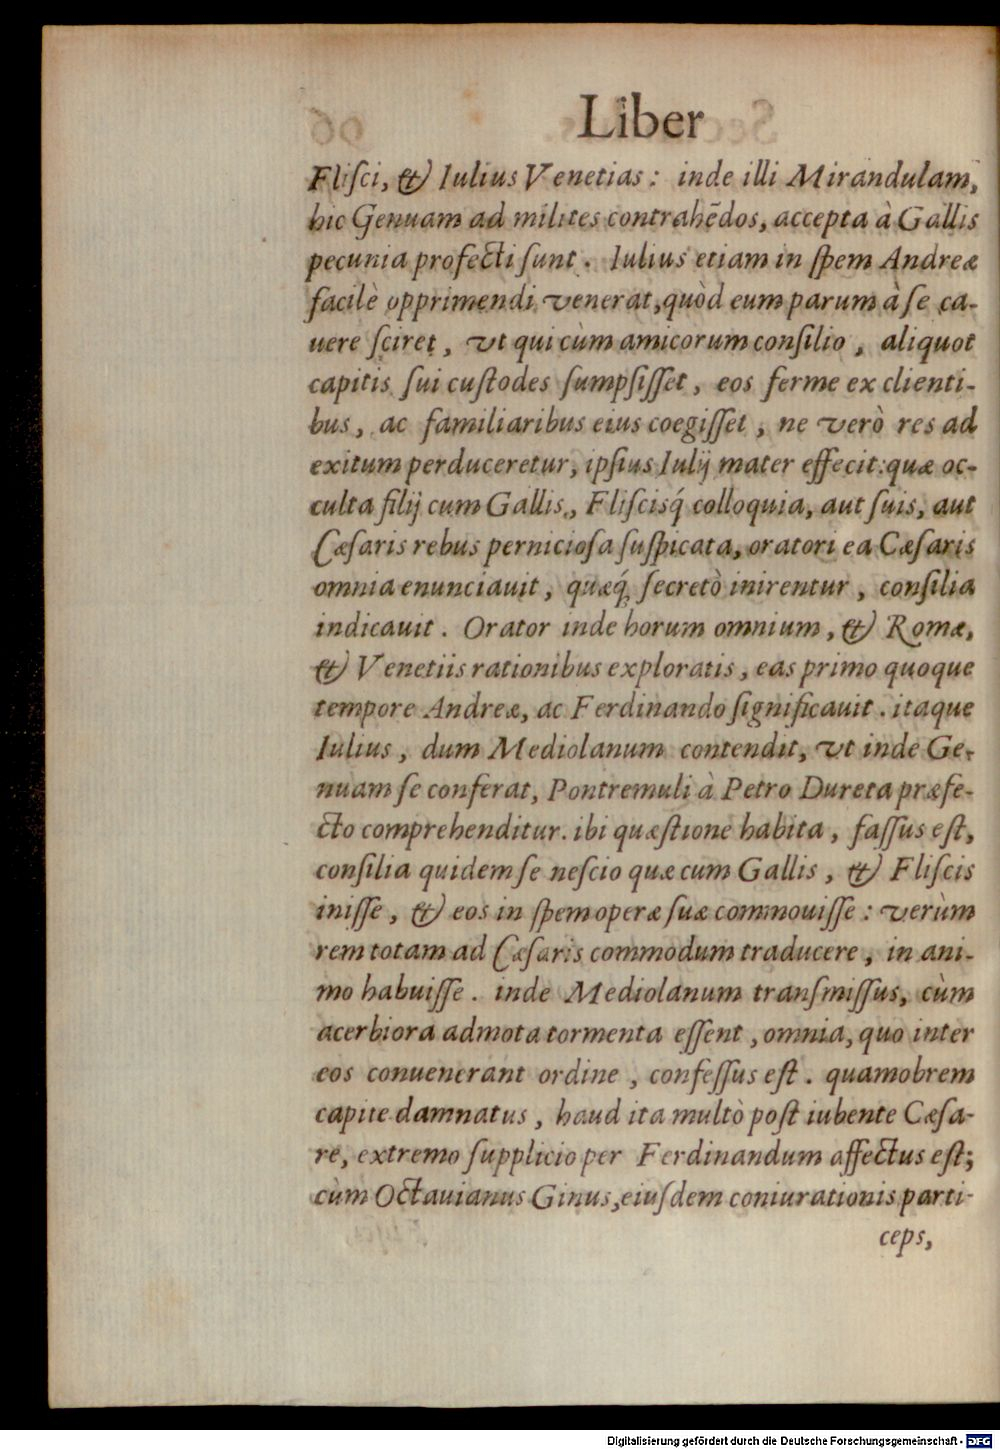 Liber
Fliſci, & Iulius Venetias: inde illi Mirandulam,
hic Genuam ad milites contrahẽdos, accepta à Gallis
pecunia profecti ſunt. Iulius etiam in ſpem Andreæ
facilè opprimendi venerat, quòd eum parum à ſe ca-
uere ſciret, vt qui cùm amicorum conſilio, aliquot
capitis ſui cuſtodes ſumpſiſſet, eos ferme ex clienti-
bus, ac familiaribus eius coegiſſet, ne verò res ad
exitum perduceretur, ipſius Iulij mater effecit: quæ oc-
culta filij cum Gallis, Fliſcisq́ colloquia, aut ſuis, aut
Cæſaris rebus pernicioſa ſuſpicata, oratori ea Cæſaris
omnia enunciauit, quæq́ ſecretò inirentur, conſilia
indicauit. Orator inde horum omnium, & Romæ,
& Venetiis rationibus exploratis, eas primo quoque
tempore Andreæ, ac Ferdinando ſignificauit. itaque
Iulius, dum Mediolanum contendit, vt inde Ge-
nuam ſe conferat, Pontremuli à Petro Dureta præfe-
cto comprehenditur. ibi quæſtione habita, faſſus eſt,
conſilia quidem ſe neſcio quæ cum Gallis, & Fliſcis
iniſſe, & eos in ſpem operæ ſuæ commouiſſe: verùm
rem totam ad Cæſaris commodum traducere, in ani-
mo habuiſſe. inde Mediolanum tranſmiſſus, cùm
acerbiora admota tormenta eſſent, omnia, quo inter
eos conuenerant ordine, confeſſus eſt. quamobrem
capite damnatus, haud ita multò poſt iubente Cæſa-
re, extremo ſupplicio per Ferdinandum affectus eſt;
cùm Octauianus Ginus, eiuſdem coniurationis parti-
ceps,
Digitalisierung gefördert durch die Deutsche Forschungsgemeinschaft - DFG